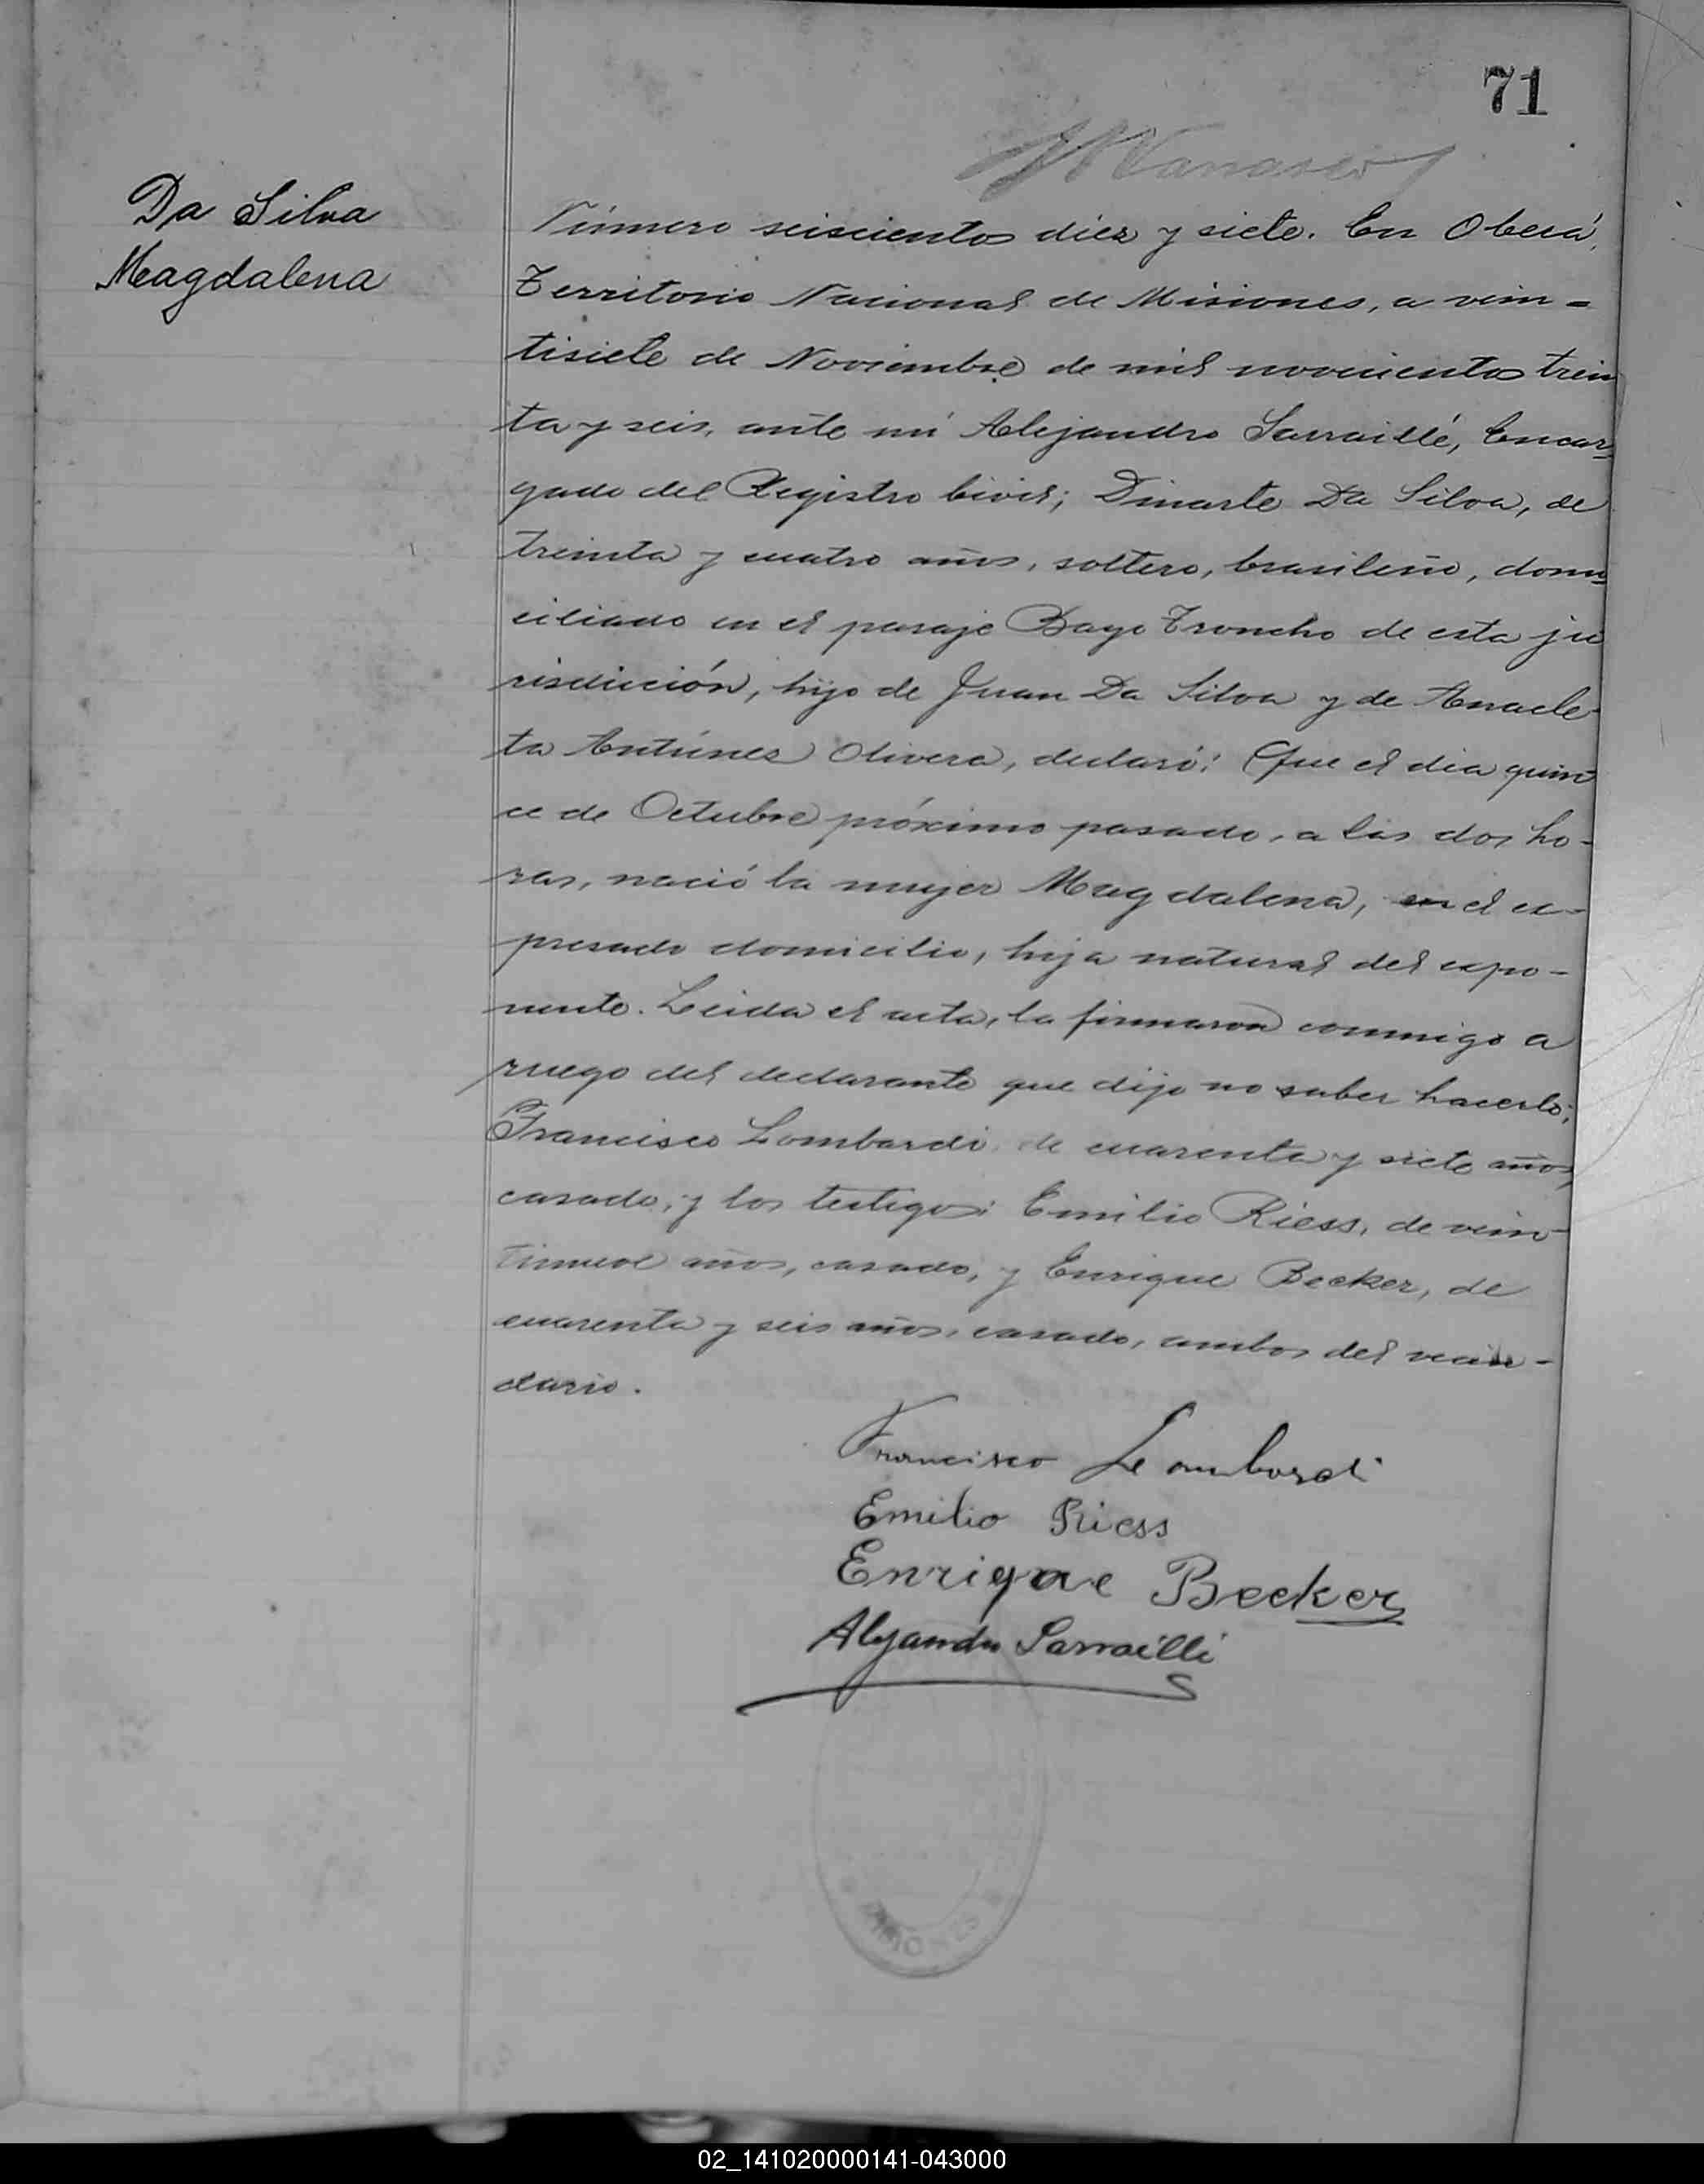 71
Da Silva
Magdalena
Número seiscientos diez y siete. En Oberá,
Territorio Nacional de Misiones, a vein-
tisiete de Noviembre de mil novecientos trein
ta y seis, ante mí Alejandro Sarraillé, Encar-
gado del Registro Civil; Dinarte Da Silva, de
treinta y cuatro años, soltero, brasileño, domi-
ciliado en el paraje Bayo Troncho de esta ju
risdicción, hijo de Juan Da Silva y de Anacle-
ta Antúnes Olivera, declaró: Que el día quin
ce de Octubre próximo pasado, a las dos ho-
ras, nació la mujer Magdalena, en el ex-
presado domicilio, hija natural del expo-
nente. Leída el acta, la firmaron conmigo a
ruego del declarante que dijo no saber hacerlo;
Francisco Lombardi de cuarenta y siete años,
casado, y los testigos: Emilio Riess, de vein-
tinueve años, casado, y Enrique Becker, de
cuarenta y seis años, casado, ambos del vecin-
dario.
Francisco Lombardi
Emilio Riess
Enrique Becker
Alejandro Sarraillé
02_141020000141-043000